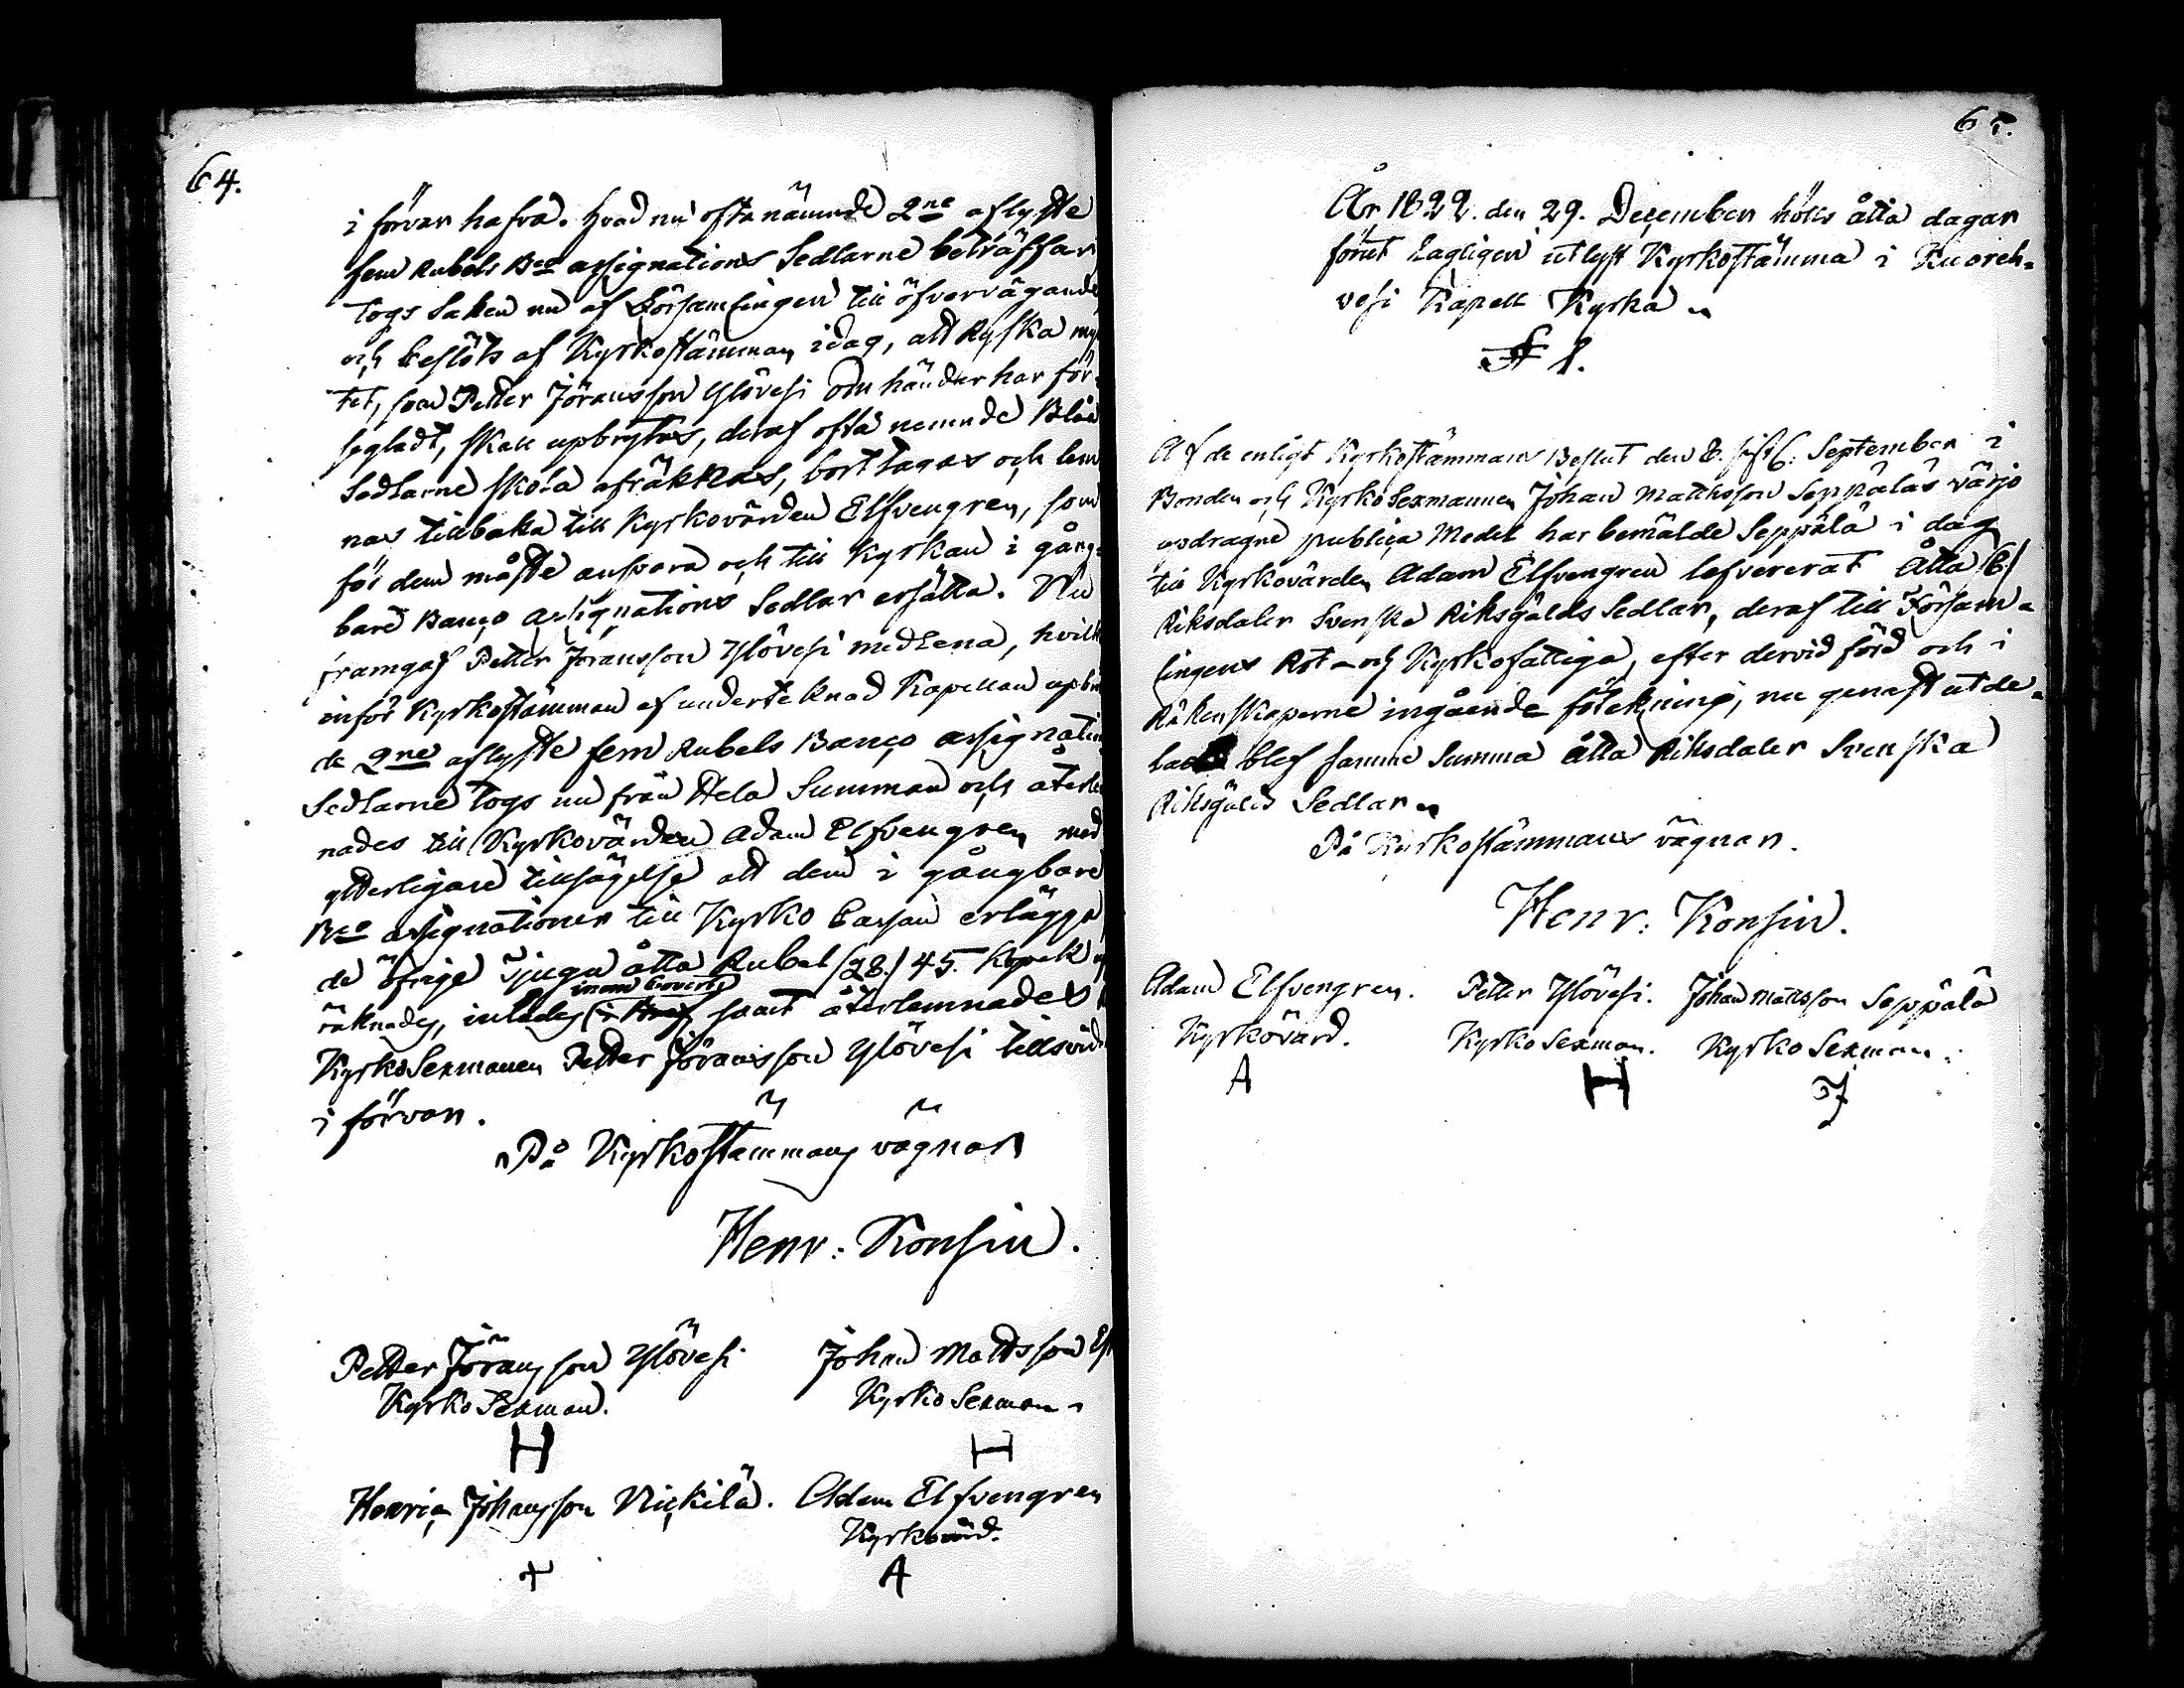 64.
i förvar hafva. Hvad nu oftanämnde 2ne aflyste
fem Rubels Bco assignations Sedlarne beträffar
togs saken nu af Församlingen till öfvervägande
och beslöts af Kyrkostämman idag, att Ryska myn
tet, som Petter Jöransson Ylövesi om händer har för-
segladt, skall upbrytas, deraf ofta nemnde Blåa
Sedlarne skola afräknas, borttagas och lem
nas tillbaka till Kyrkovärden Elfvengren, som
för dem måste ansvara och till Kyrkan i gång-
bare Banco assignations Sedlar ersätta. Nu
framgaf Petter Jöransson Ylövesi medlena, hvilk
inför Kyrkostämman af underteknad Kapellan upbröt
de 2ne aflyste fem Rubels Banco assignation
Sedlarne togs nu från Hela Summan och återlem
nades till Kyrkovärden Adam Elfvengren med
ytterligare tillsägelse att dem i gångbare
Bco assignationer till Kyrko Cassan erlägga
de öfrige Tjugu åtta Rubel (28.) 45. Kopek
inom Couvert
räknades, inlades samt återlemnades
KyrkoSexmannen Petter Jöransson Ylövesi tillsvid
i förvar.
På Kyrkostämmans vägnar
Henr: Konsin.
Petter Jöransson Ylövesi Johan Mattsson
Kyrko Sexman. Kyrko Sexman
H H
Henric Johansson Nickilä. Adam Elfvengren
Kyrkovärd.
+ A
65.
År 1822. den 29. December hölls åtta dagar
förut Lagligen utlyst Kyrkostämma i Kuoreh-
vesi Kapell Kyrka
§ 1.
Af de enligt Kyrkostämmans Beslut den 8. sistl. September i
Bonden och KyrkoSexmannen Johan Mattsson Seppäläs värjo
updragne publica Medel har bemälde Seppälä i dag
till Kyrkovärden Adam Elfvengren lefvererat Åtta (8)
Riksdaler Svenska Riksgälds Sedlar, deraf till Försam-
lingens Rot- och Kyrkofattiga, efter dervid förd och i
Räkenskaperne ingående förtekning, nu genast utde-
lad blef samme Summa åtta Riksdaler Svenska
Riksgälds Sedlar
På Kyrkostämmans vägnar.
Henr: Konsin.
Adam Elfvengren. Petter Ylövesi. Johan Mattsson Seppälä
Kyrkovärd. Kyrko Sexman. Kyrko Sexman.
A H